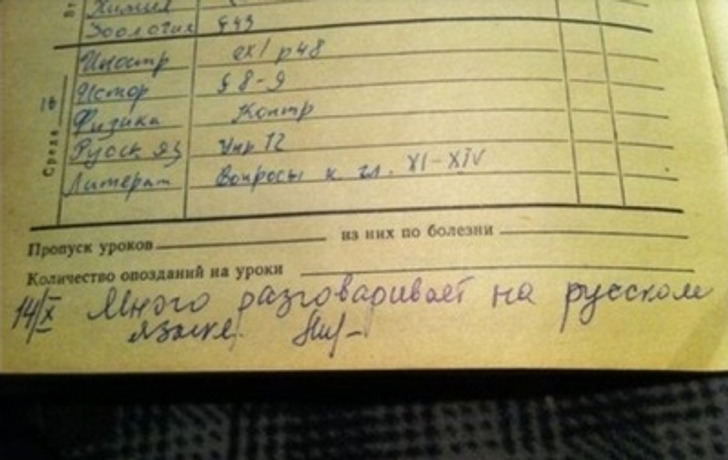 Химия
Зоология §49
Иностр ex1 p48
16 Истор § 8-9
Среда Физика Контр
Русск яз Упр 12
Литерат Вопросы к гл. XI-XIV
Пропуск уроков из них по болезни
Количество опозданий на уроки
14/X Много разговаривает на русском
языке.